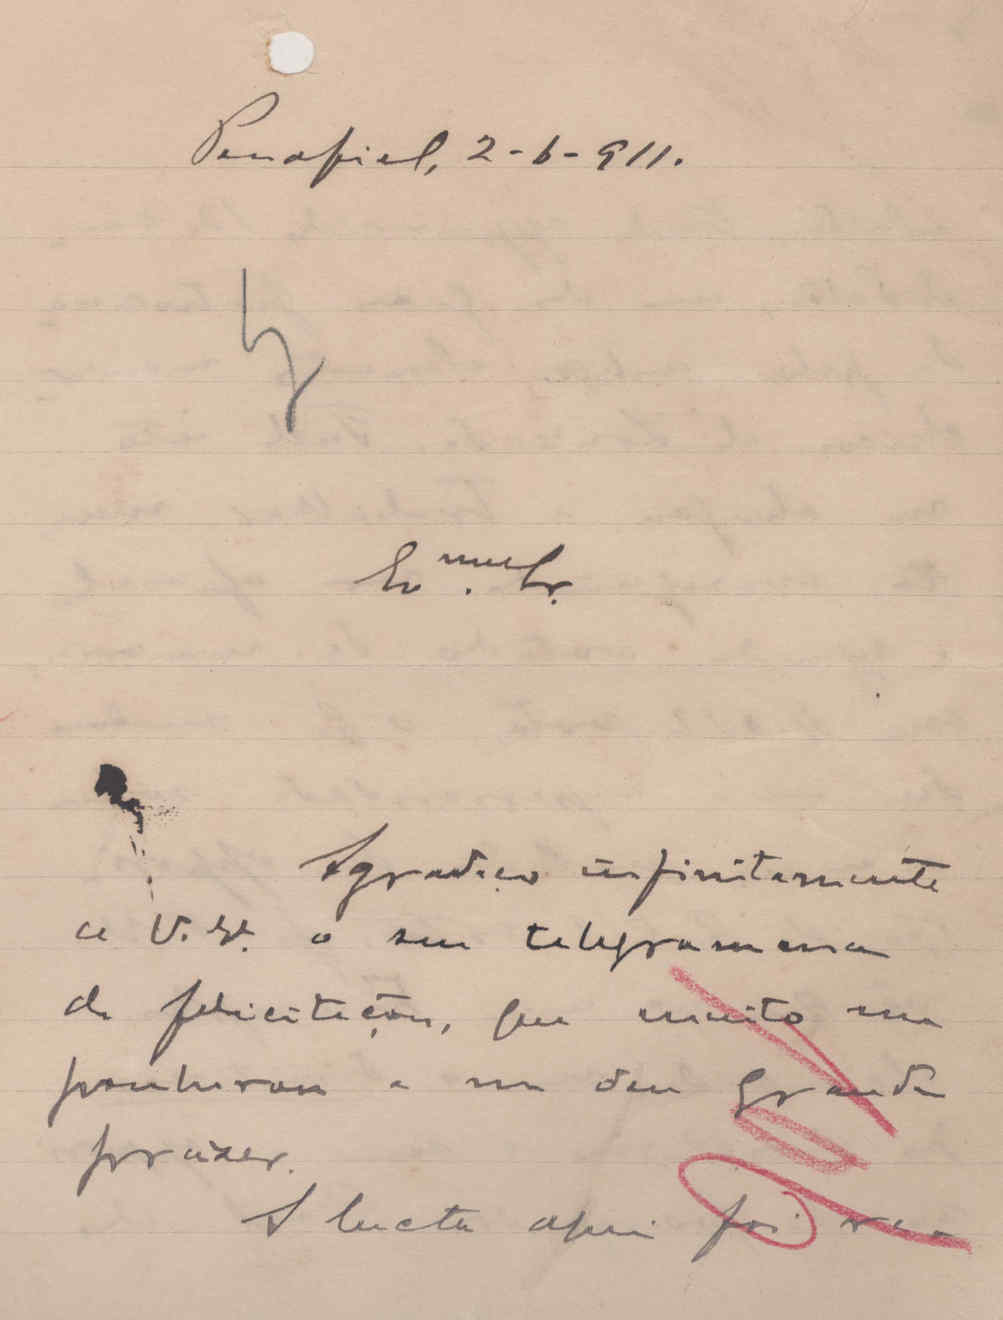 Penafiel, 2-6-911.
Ex.mo Sr.
Agradeço infinitamente
a V. Ex. o seu telegramma
de felicitações, que muito me
penhorou e me deu grande
prazer.
A lucta aqui foi